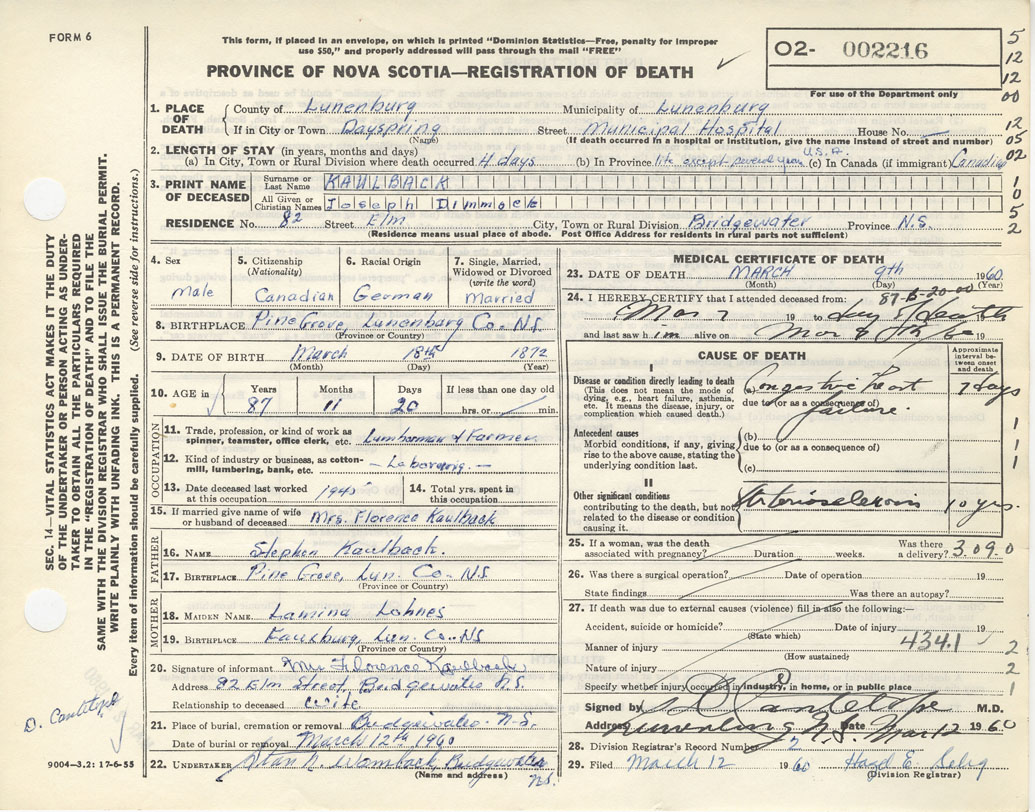 FORM 6
This form, if placed in an envelope, on which is printed "Dominion Statistics—Free, penalty for improper
use $50," and properly addressed will pass through the mail "FREE"
PROVINCE OF NOVA SCOTIA—REGISTRATION OF DEATH
02- 002216
For use of the Department only
5
12
12
00
12
05
02
1
0
5
2
SEC. 14—VITAL STATISTICS ACT MAKES IT THE DUTY
OF THE UNDERTAKER OR PERSON ACTING AS UNDER-
TAKER TO OBTAIN ALL THE PARTICULARS REQUIRED
IN THE "REGISTRATION OF DEATH" AND TO FILE THE
SAME WITH THE DIVISION REGISTRAR WHO SHALL ISSUE THE BURIAL PERMIT.
WRITE PLAINLY WITH UNFADING INK. THIS IS A PERMANENT RECORD.
Every item of information should be carefully supplied. (See reverse side for instructions.)
1. PLACE OF DEATH
County of Lunenburg Municipality of Lunenburg
If in City or Town Dayspring Street Municipal Hospital House No.
(Name) (If death occurred in a hospital or institution, give the name instead of street and number)
2. LENGTH OF STAY (in years, months and days)
(a) In City, Town or Rural Division where death occurred 4 days (b) In Province life except several years U.S.A. (c) In Canada (if immigrant) Canadian
3. PRINT NAME OF DECEASED
Surname or Last Name KAULBACK
All Given or Christian Names Joseph Dimmock
RESIDENCE No. 82 Street Elm City, Town or Rural Division Bridgewater Province N.S.
(Residence means usual place of abode. Post Office Address for residents in rural parts not sufficient)
4. Sex
Male
5. Citizenship (Nationality)
Canadian
6. Racial Origin
German
7. Single, Married, Widowed or Divorced (write the word)
Married
8. BIRTHPLACE Pine Grove, Lunenburg Co. N.S.
(Province or Country)
9. DATE OF BIRTH March 18th 1872
(Month) (Day) (Year)
10. AGE in
Years Months Days If less than one day old
87 11 20 hrs. or min.
OCCUPATION
11. Trade, profession, or kind of work as
spinner, teamster, office clerk, etc. Lumberman & Farmer
12. Kind of industry or business, as cotton-
mill, lumbering, bank, etc. — Laboring. —
13. Date deceased last worked
at this occupation 1945
14. Total yrs. spent in
this occupation
15. If married give name of wife
or husband of deceased Mrs. Florence Kaulback
FATHER
16. NAME Stephen Kaulback.
17. BIRTHPLACE Pine Grove, Lun. Co. N.S.
(Province or Country)
MOTHER
18. MAIDEN NAME Lamina Lohnes
19. BIRTHPLACE Fauxburg, Lun. Co. N.S
(Province or Country)
20. Signature of informant Mrs Florence Kaulback
Address 82 Elm Street, Bridgewater N.S.
Relationship to deceased wife
21. Place of burial, cremation or removal Bridgewater N.S.
Date of burial or removal March 12th 1960
22. UNDERTAKER Bridgewater
(Name and address) N.S.
9004—3.2: 17-6-55
MEDICAL CERTIFICATE OF DEATH
23. DATE OF DEATH MARCH 9th 1960
(Month) (Day) (Year)
24. I HEREBY CERTIFY that I attended deceased from: 87-B-20-00
Mar 7 19 to day of death
and last saw him alive on Mar 8th 60 19
CAUSE OF DEATH
Approximate interval between onset and death
I
Disease or condition directly leading to death
(This does not mean the mode of
dying, e.g., heart failure, asthenia,
etc. It means the disease, injury, or
complication which caused death.)
(a) Congestive heart failure. 7 days
due to (or as a consequence of)
Antecedent causes
Morbid conditions, if any, giving
rise to the above cause, stating the
underlying condition last.
(b)
due to (or as a consequence of)
(c)
II
Other significant conditions
contributing to the death, but not
related to the disease or condition
causing it.
Arteriosclerosis 10 yrs.
1
1
1
25. If a woman, was the death
associated with pregnancy? Duration weeks. Was there a delivery? 3.09.0
26. Was there a surgical operation? Date of operation 19
State findings Was there an autopsy?
27. If death was due to external causes (violence) fill in also the following:—
Accident, suicide or homicide? Date of injury 19
(State which)
434.1
Manner of injury
(How sustained)
Nature of injury
Specify whether injury occurred in industry, in home, or in public place
2
2
1
Signed by M.D.
Address Lunenburg N.S. Date Mar 12 1960
28. Division Registrar's Record Number 7
29. Filed March 12 1960 Hazel E. Selig
(Division Registrar)